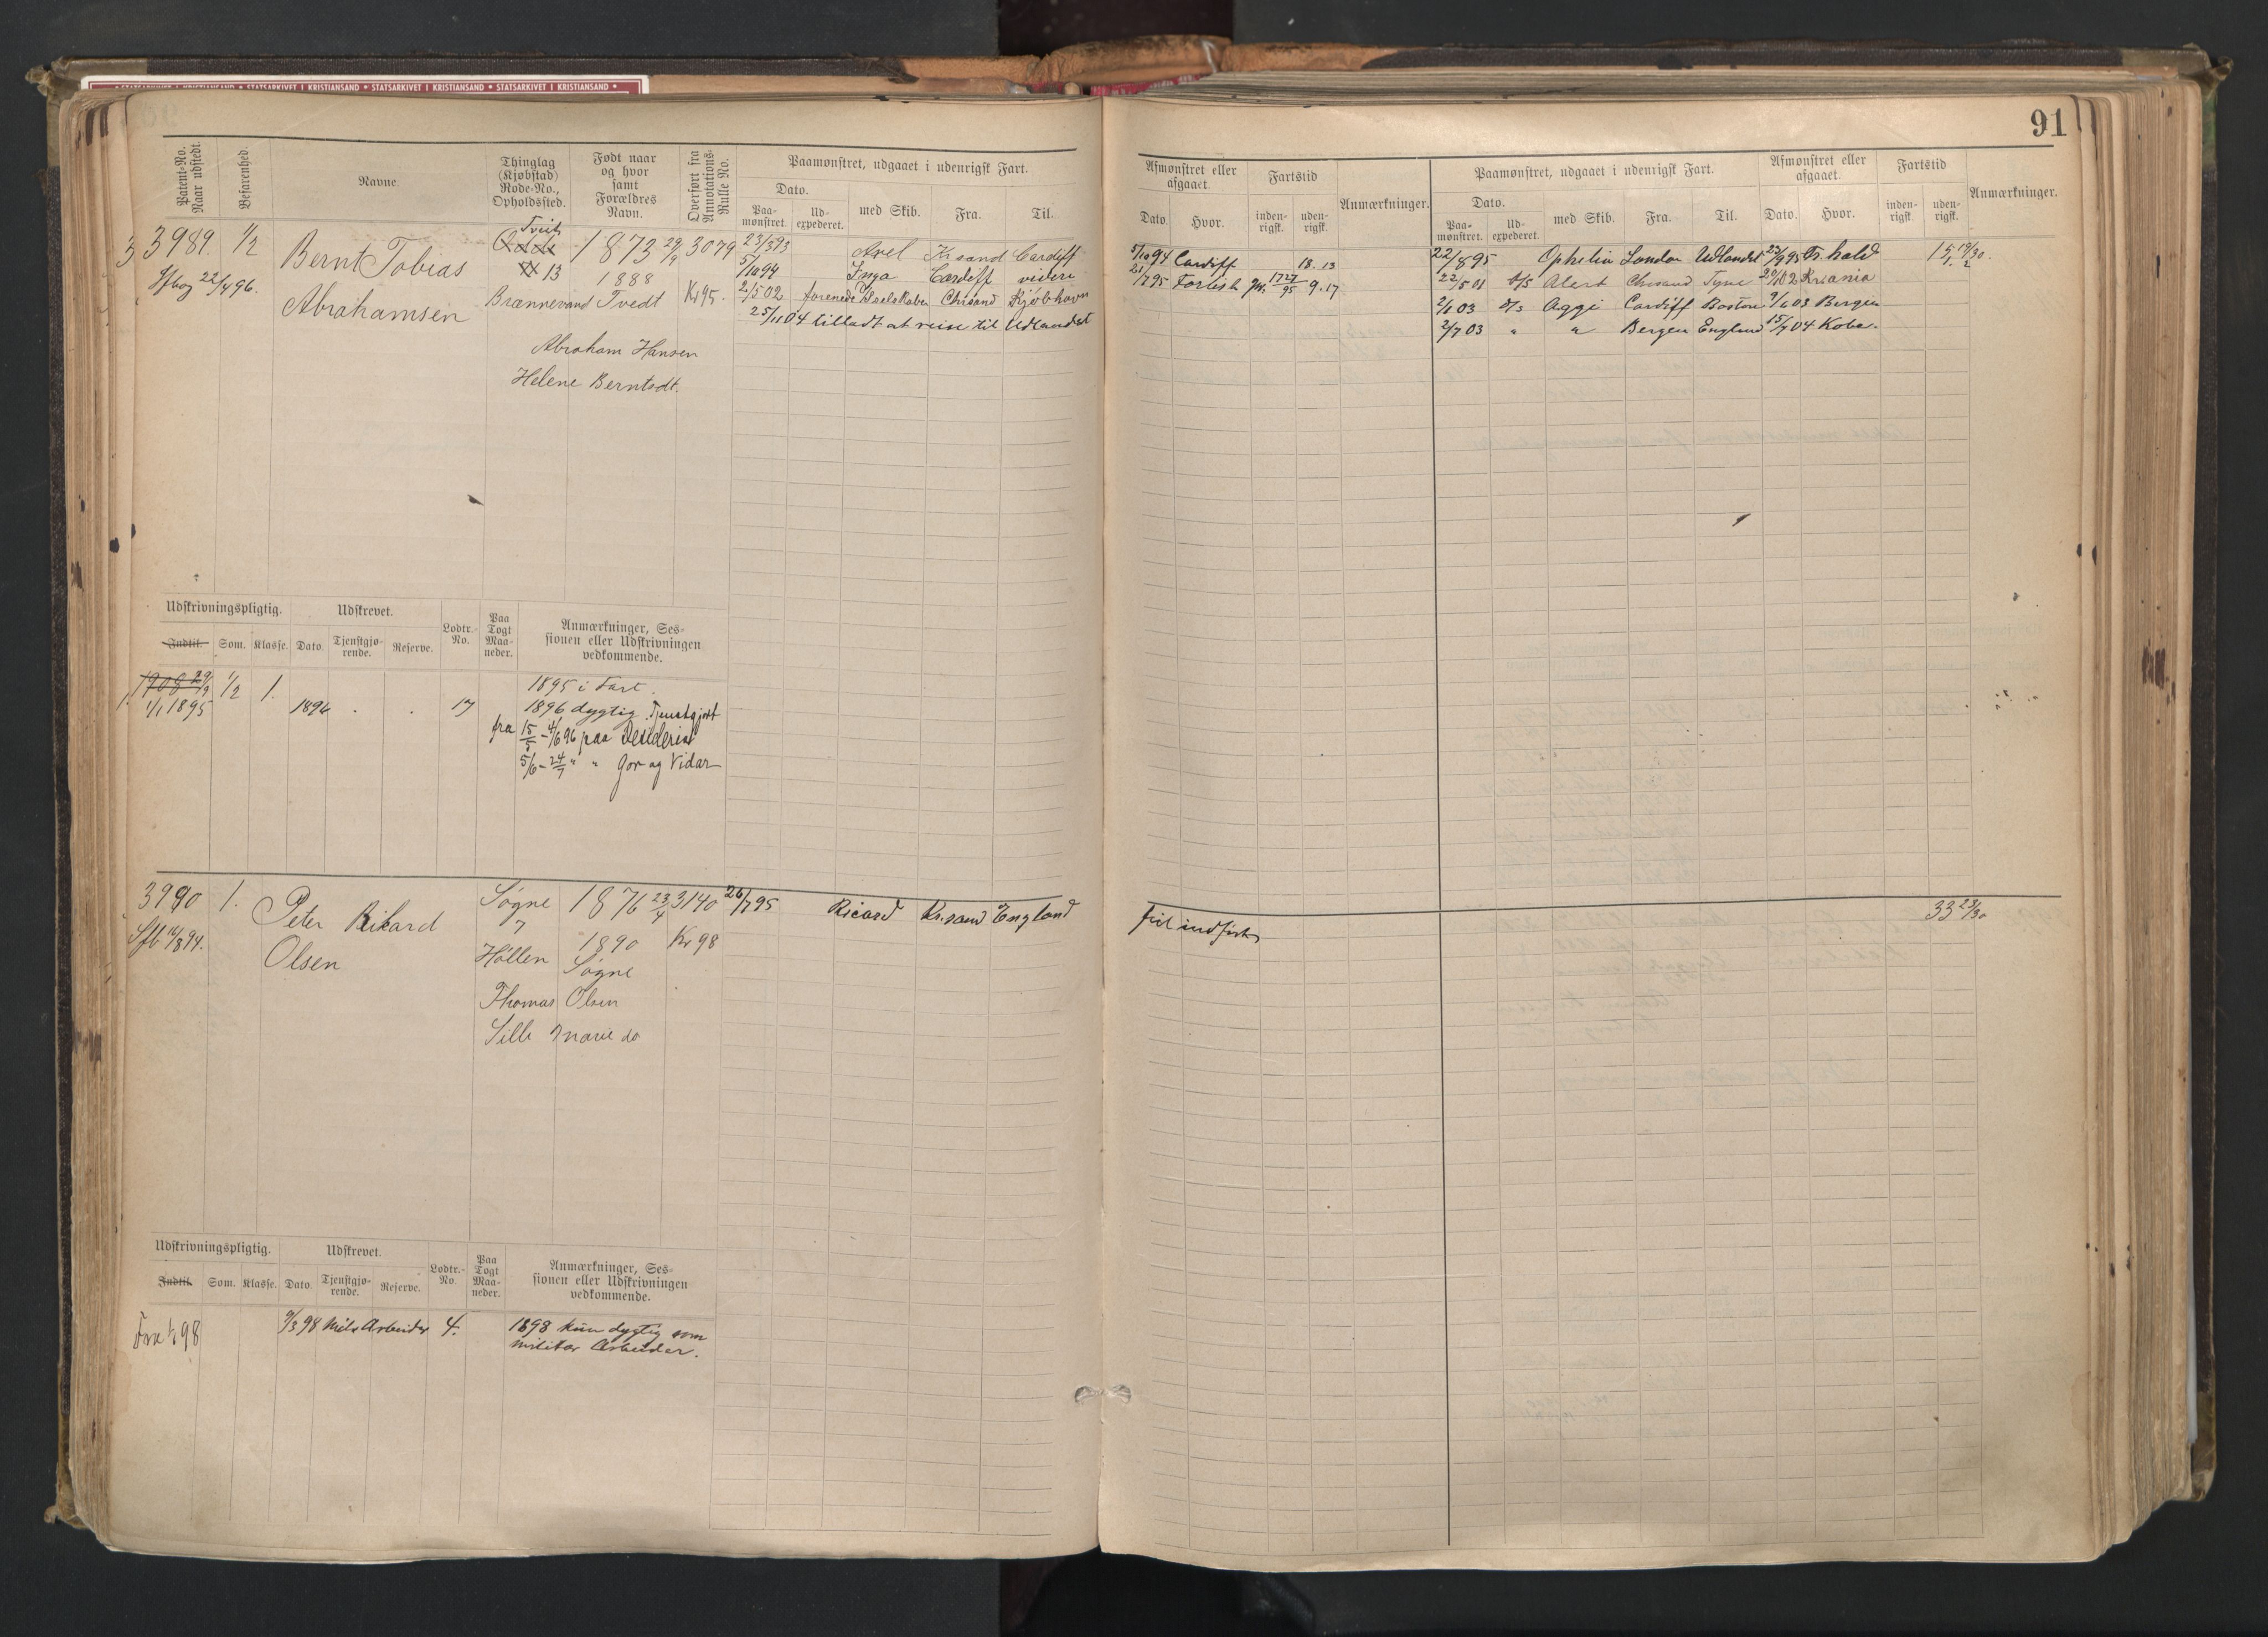 • STATSARKIVET I KRISTIANSAND • STATSARKIVET I KRISTIANSAND • STATSARKIVET I KRISTIANSAND • STATSARKIVET I KRISTIANSAND •
91
Patent-No. Naar udstedt.
Befarenhed.
Navne.
Thinglag (Kjøbstad) Rode-No., Opholdssted.
Født naar og hvor samt Forældres Navn.
Overført fra Annotations-Rulle No.
Paamønstret, udgaaet i udenrigsk Fart.
Dato.
Paa-mønstret.
Ud-expederet.
med Skib.
Fra.
Til.
Afmønstret eller afgaaet.
Dato.
Hvor.
Fartstid
inden-rigsk.
uden-rigsk.
Anmærkninger.
Paamønstret, udgaaet i udenrigsk Fart.
Dato.
Paa-mønstret.
Ud-expederet.
med Skib.
Fra.
Til.
Afmønstret eller afgaaet.
Dato.
Hvor.
Fartstid
inden-rigsk.
uden-rigsk.
Anmærkninger.
3 3989. 1/2
22/4 96.
Bernt Tobias
Abrahamsen
Tveit
Odde
13
Brænnevand Tvedt
1873 29/9 3079
1888
Kr 95.
Abraham Hansen
Helene Berntsdt.
23/3 93 Axel Krsand Cardiff
5/10 94 Inga Cardiff videre
2/5 02 forenede Chrsand Kjøbhavn
25/11 04 tilladt at reise til Udlandet
5/10 94 Cardiff 18. 13
21/7 95 17 27/95 9. 17
22/8 95 Ophelia London Udlandet 25/9 95 Fr.hald 15 19/30
22/5 01 d/s Alert Chrsand Tyne 20/1 02 Krania
2/1 03 d/s Aggi Cardiff Boston 9/6 03 Bergen
2/7 03 " " Bergen England 15/7 04 Kobe.
Udskrivningspligtig.
Udskrevet.
Lodtr.-No.
Paa Togt Maa-neder.
Anmærkninger, Ses-sionen eller Udskrivningen vedkommende.
Indtil.
Som.
Klasse.
Dato.
Tjenstgjø-rende.
Reserve.
1908 29/9 1/2 1.
1/1 1895 1894 . . 17
1895 i Fart.
1896 dygtig. Tjenstgjort
fra 15/5 - 4/6 96 paa Desideria
5/6 - 24/7 " " Gor og Vidar
3990 1.
Sfb 14/8 94.
Peter Rikard
Olsen
Søgne
7
Høllen
1876 23/4 3140
1890 Kr 98
Søgne
Thomas Olsen
Sille Marie do
26/7 95 Ricard Kr.sand England
33 23/30
Udskrivningspligtig.
Udskrevet.
Lodtr.-No.
Paa Togt Maa-neder.
Anmærkninger, Ses-sionen eller Udskrivningen vedkommende.
Indtil.
Som.
Klasse.
Dato.
Tjenstgjø-rende.
Reserve.
Fra 1/1 98
9/3 98 Milt Arbeider 4.
1898 kun dygtig som
militær Arbeider.